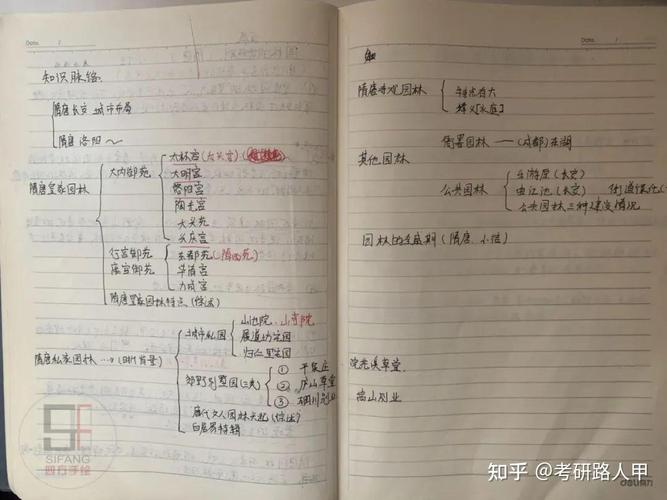 Date. /
知识脉络.
隋唐长安 城市布局
隋唐洛阳 ~
隋唐皇家园林
大内御苑
太极宫(
大明宫
洛阳宫
兴庆宫
行宫御苑
离宫御苑
东都苑(隋西苑)
华清宫
九成宫
隋唐皇家园林特点(综述)
隋唐私家园林
城市私园
山池院、山亭院
履道坊宅园
归仁里宅园
郊野别墅园(三类)
① 平泉庄
② 庐山草堂
③ 辋川别业
唐代文人园林兴起(综述)
白居易特辑
SF
SIFANG
四方手绘
Date. /
隋唐寺观园林
其他园林
衙署园林 —
公共园林
乐游原(长安)
曲江池(长安)
公共园林三种建设情况
园林的全盛期(隋唐 小结)
浣花溪草堂
嵩山别业
知乎 @考研路人甲